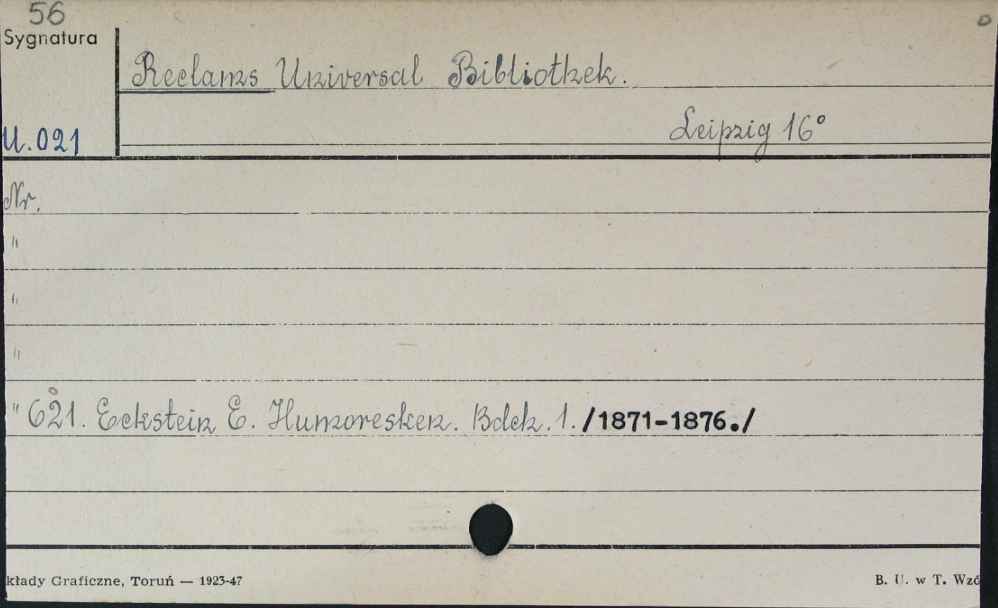 56
Sygnatura
Reclams Universal Bibliothek.
U.021
Leipzig 16°
Nr.
"
"
"
" 621. Eckstein E. Humoresken. Bdch. 1. /1871-1876./
kłady Graficzne, Toruń — 1923-47
B. U. w T. Wzó